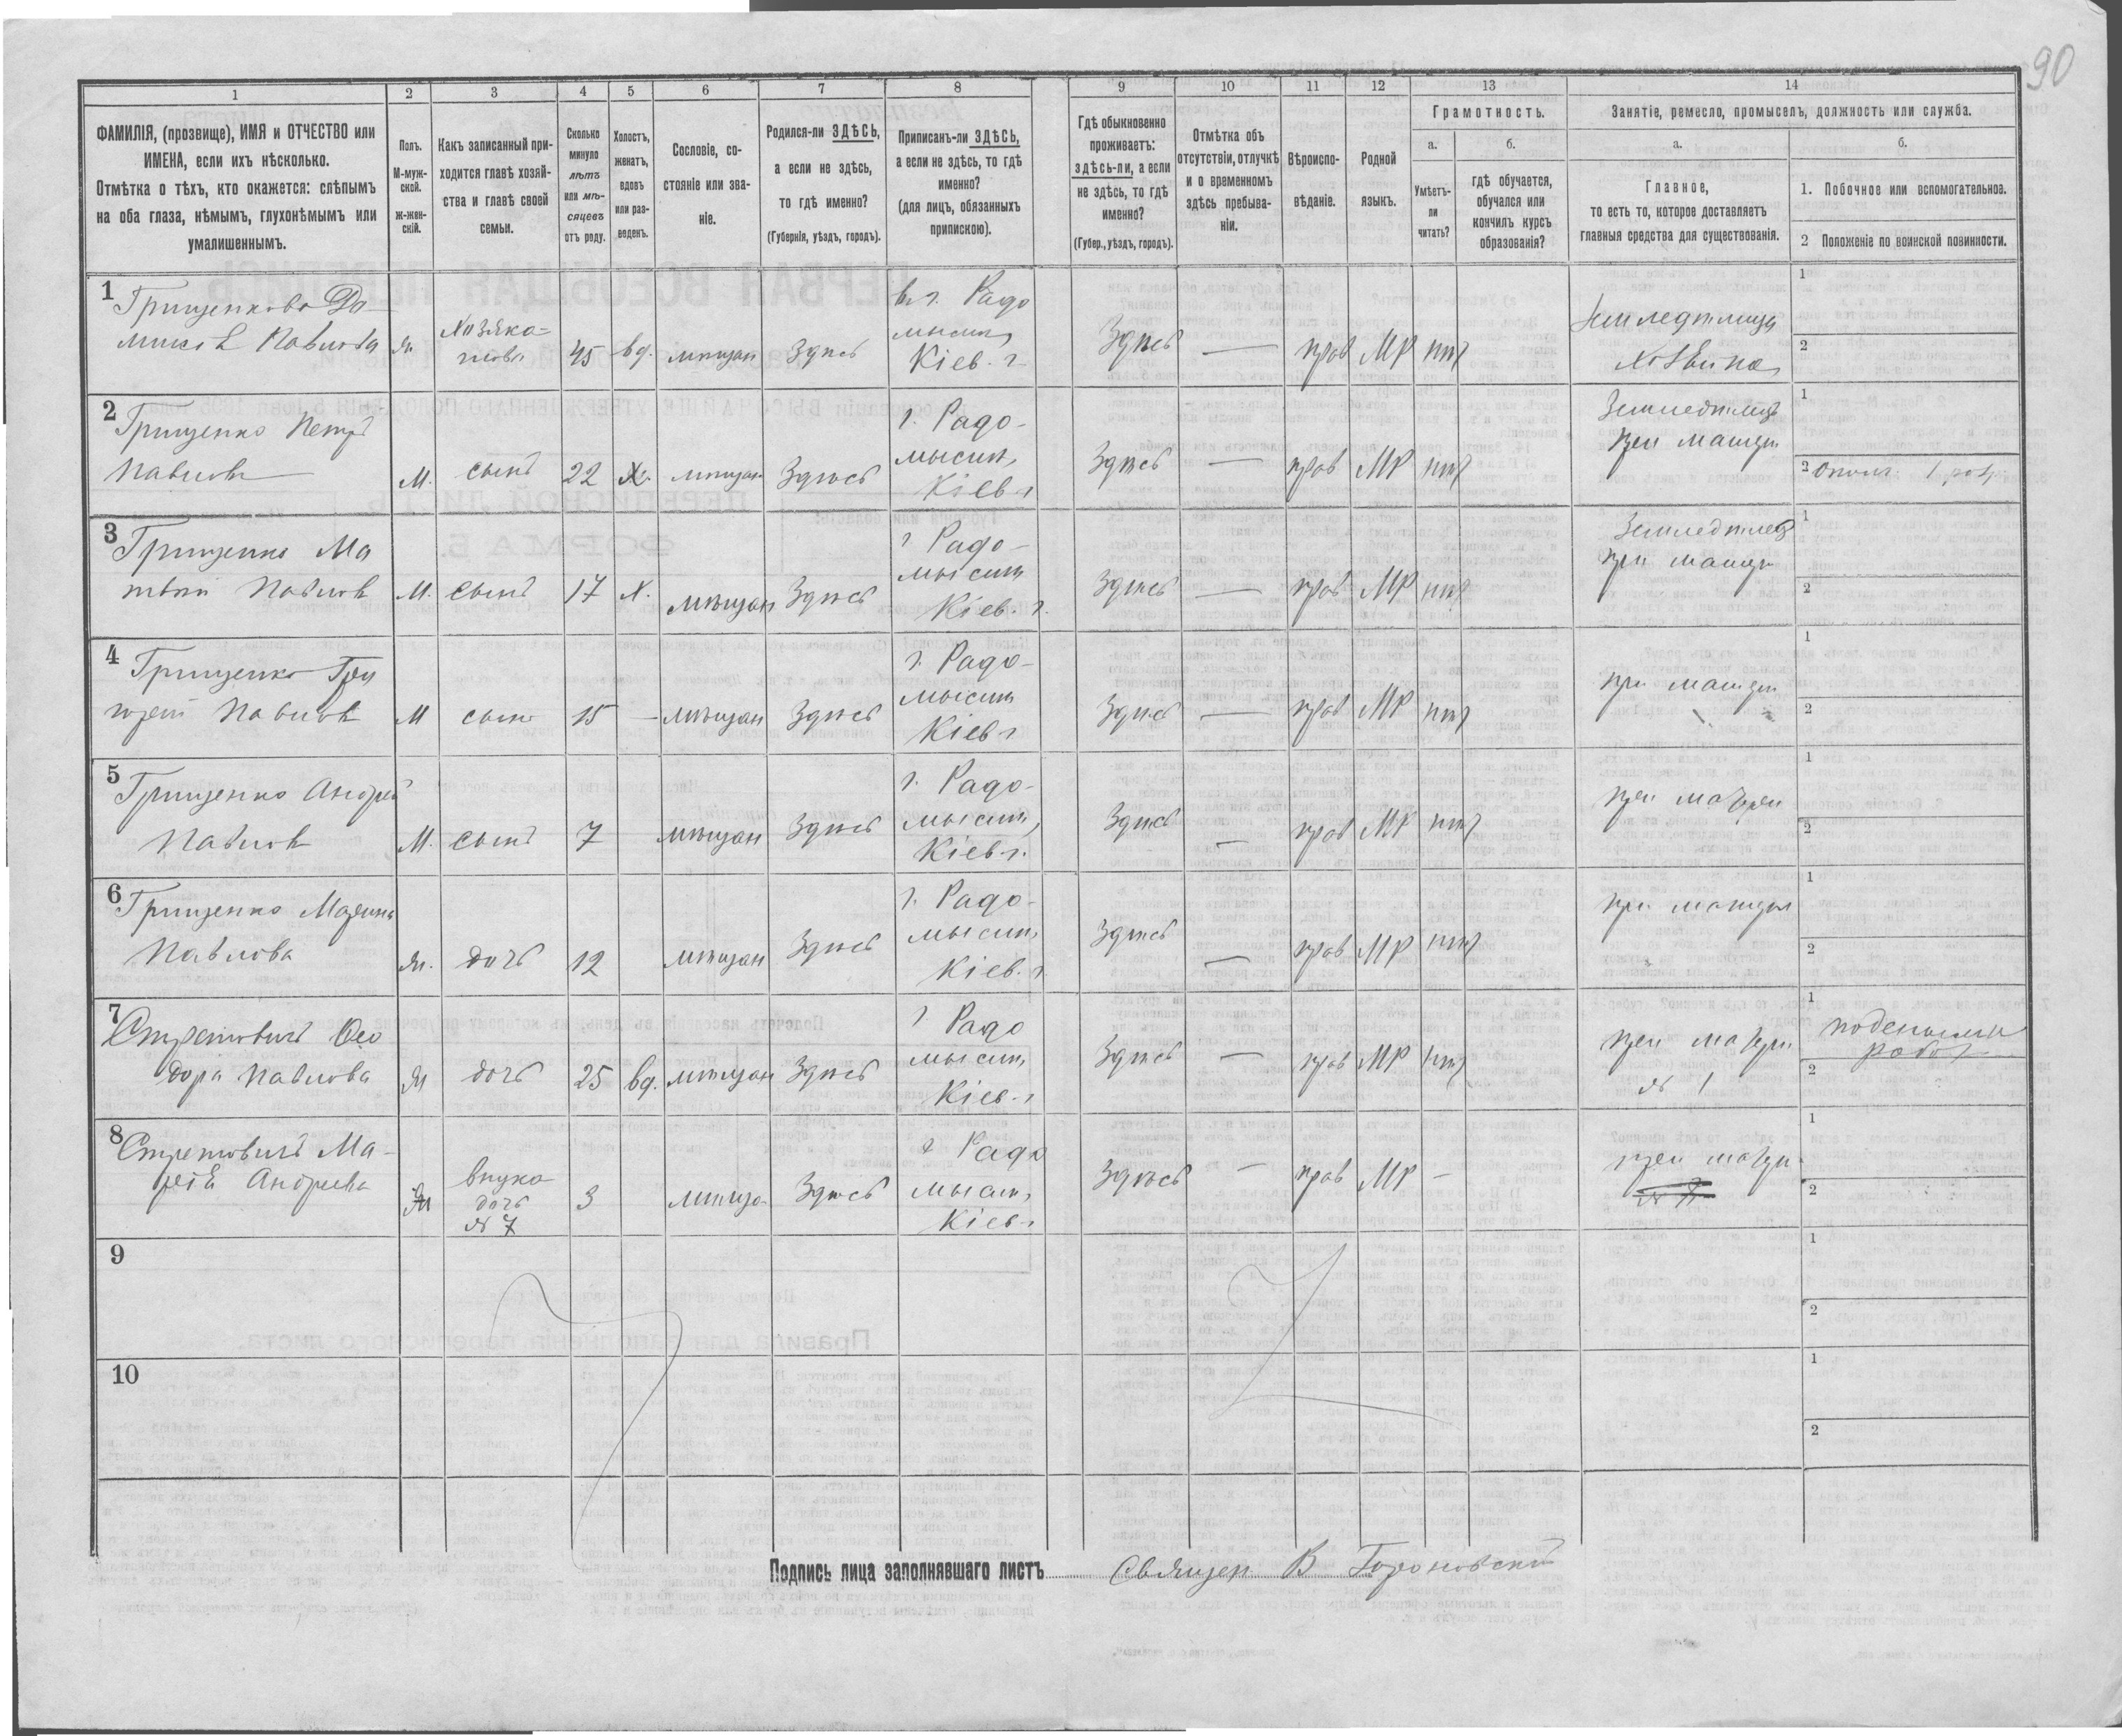 90
1 2 3 4 5 6 7 8 9 10 11 12 13 14
ФАМИЛІЯ, (прозвище), ИМЯ и ОТЧЕСТВО или
ИМЕНА, если ихъ нѣсколько.
Отмѣтка о тѣхъ, кто окажется: слѣпымъ
на оба глаза, нѣмымъ, глухонѣмымъ или
умалишеннымъ.
Полъ.
М-муж-
ской.
Ж-жен-
скій.
Какъ записанный при-
ходится главѣ хозяй-
ства и главѣ своей
семьи.
Сколько
минуло
лѣтъ
или мѣ-
сяцевъ
отъ роду.
Холостъ,
женатъ,
вдовъ
или раз-
веденъ.
Сословіе, со-
стояніе или зва-
ніе.
Родился-ли ЗДѢСЬ,
а если не здѣсь,
то гдѣ именно?
(Губернія, уѣздъ, городъ).
Приписанъ-ли ЗДѢСЬ,
а если не здѣсь, то гдѣ
именно?
(для лицъ, обязанныхъ
припискою).
Гдѣ обыкновенно
проживаетъ:
здѣсь-ли, а если
не здѣсь, то гдѣ
именно?
(Губер., уѣздъ, городъ).
Отмѣтка объ
отсутствіи, отлучкѣ
и о временномъ
здѣсь пребыва-
ніи.
Вѣроиспо-
вѣданіе.
Родной
языкъ.
Грамотность.
а.
Умѣетъ-
ли
читать?
б.
гдѣ обучается,
обучался или
кончилъ курсъ
образованія?
Занятіе, ремесло, промыселъ, должность или служба.
а.
Главное,
то есть то, которое доставляетъ
главныя средства для существованія.
б.
1. Побочное или вспомогательное.
2 Положеніе по воинской повинности.
1
Грищенкова До-
Павлова
45 вд. мѣщан Здѣсь
г. Радо
мысль
Кіев. г.
Здѣсь — прав МР нѣт
Хозяйка
1
2
2
Грищенко Петръ
Павловъ
М. сынъ 22 х. мѣщан Здѣсь
г. Радо-
мысль,
Кіев г
Здѣсь — прав МР нѣт
Земледѣлецъ
при матери
1
2
3
Грищенко Ма
твѣй Павловъ
М. сынъ 17 х. мѣщан Здѣсь
г Радо-
мысль
Кіев. г.
Здѣсь — прав МР нѣт
Земледѣлецъ
при матери
1
2
4
Грищенко Гри
горій Павловъ
М сынъ 15 — мѣщан Здѣсь
г. Радо-
мысль
Кіев г
Здѣсь — прав МР нѣт
при матери
1
2
5
Грищенко Андрей
Павловъ
М. сынъ 7 мѣщан Здѣсь
г. Радо-
мысль,
Кіев г.
Здѣсь — прав МР нѣт
при матери
1
2
6
Грищенко Марина
Павлова
ж. дочь 12 мѣщан Здѣсь
г. Радо-
мысль,
Кіев. г
Здѣсь — прав МР нѣт
при матери
1
2
7
Ѳео
дора Павлова
ж дочь 25 вд. мѣщан Здѣсь
г Радо
мысль,
Кіев. г
Здѣсь — прав МР нѣт
при матери
№ 1
1
2
8
Ма-
рія Андреева
ж
внука
дочь
№ 7
3 Здѣсь
г Радо
мысль,
Кіев г
Здѣсь — прав МР —
при матери
1
2
9
1
2
10
1
2
Подпись лица заполнявшаго листъ Священ. В